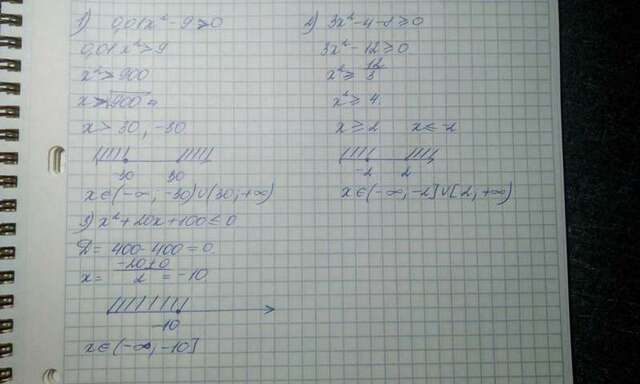 1) 0,01x² - 9 > 0
0,01x² > 9
x² > 900
x > √900 =
x > 30, -30
-30 30
x ∈ (-∞; -30) ∪ (30; +∞)
2) 3x² - 4 - 8 ≥ 0
3x² - 12 ≥ 0
x² ≥ 12/3
x² ≥ 4
x ≥ 2 x ≤ -2
-2 2
x ∈ (-∞, -2] ∪ [2; +∞)
3) x² + 20x + 100 ≤ 0
D = 400 - 400 = 0
x = (-20±0)/2 = -10
-10
x ∈ (-∞, -10]